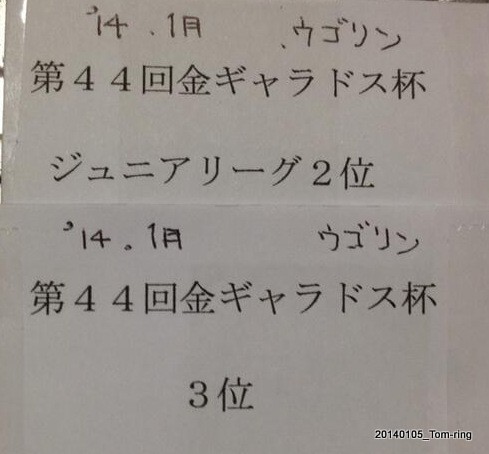 '14.1月 ウゴリン
第44回金ギャラドス杯
ジュニアリーグ2位
'14.1月 ウゴリン
第44回金ギャラドス杯
3位
20140105_Tom-ring